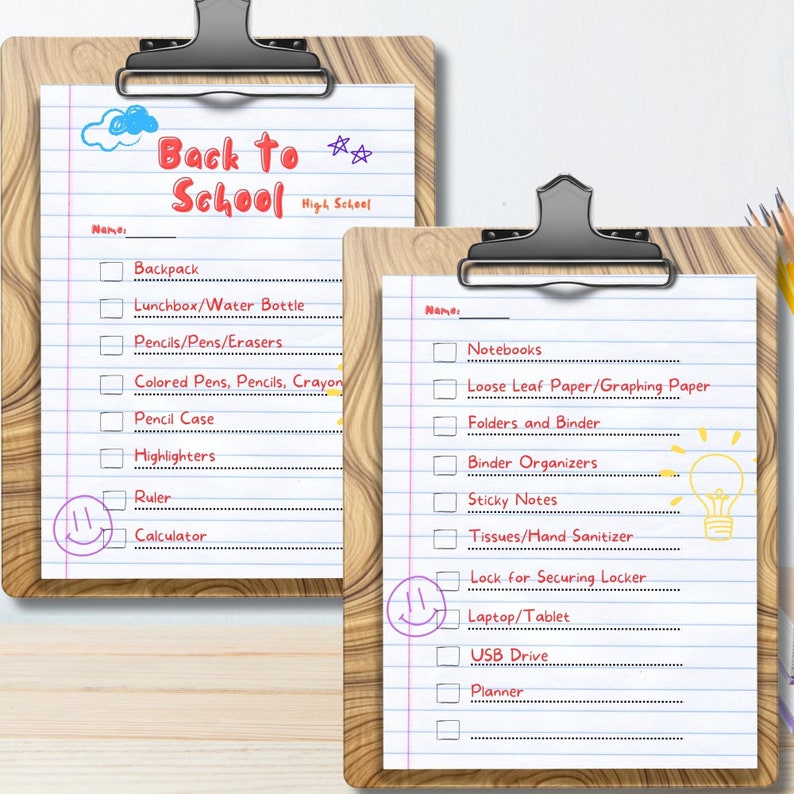 Back to
School
High School
Name:
Backpack
Lunchbox/Water Bottle
Pencils/Pens/Erasers
Colored Pens, Pencils, Crayon
Pencil Case
Highlighters
Ruler
Calculator
Name:
Notebooks
Loose Leaf Paper/Graphing Paper
Folders and Binder
Binder Organizers
Sticky Notes
Tissues/Hand Sanitizer
Lock for Securing Locker
Laptop/Tablet
USB Drive
Planner